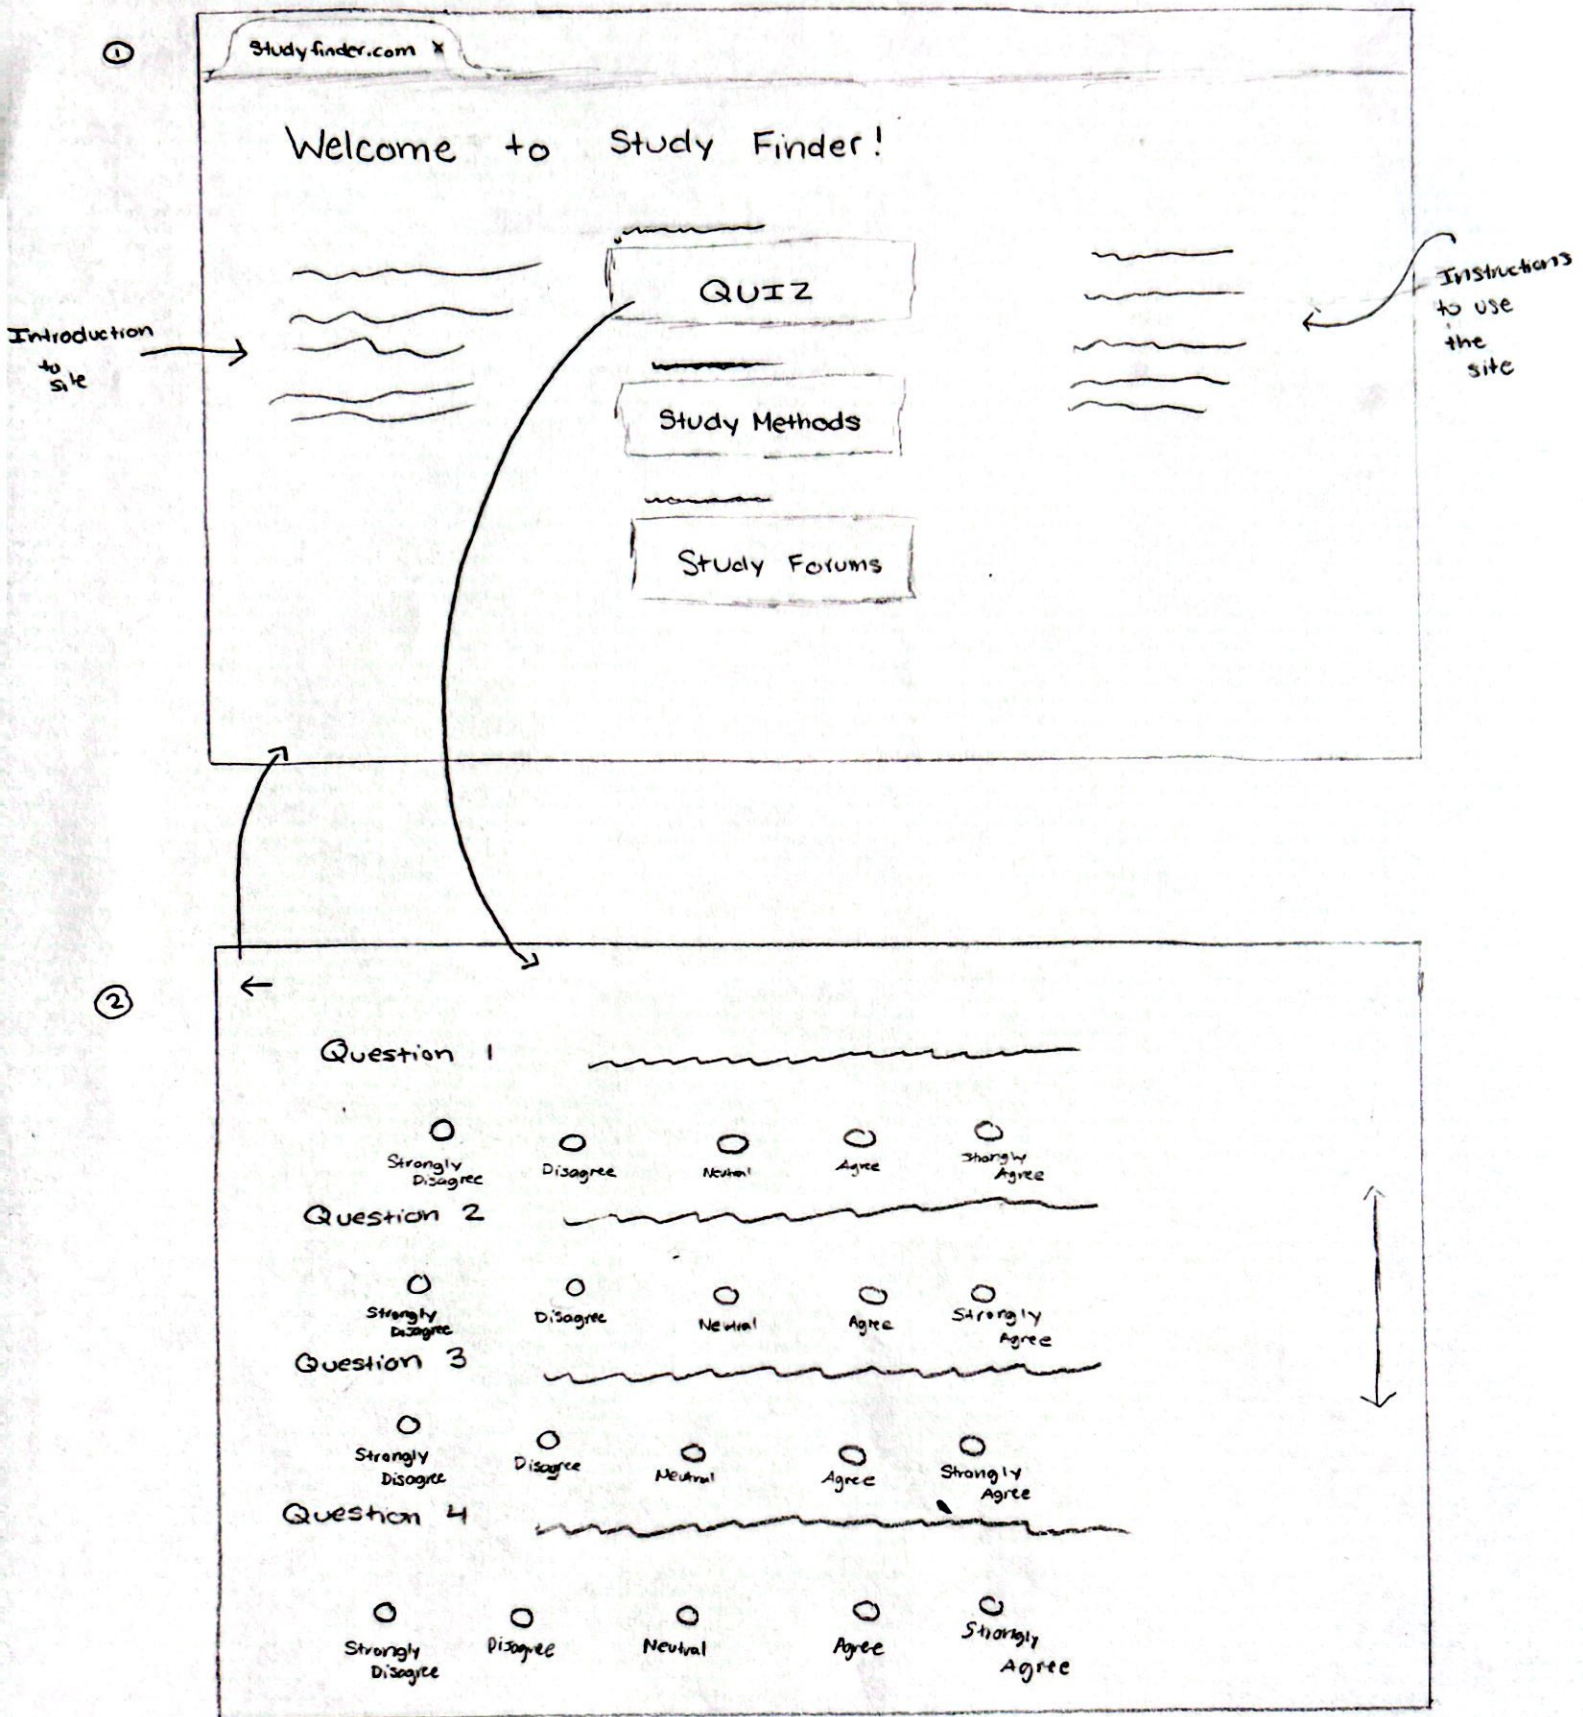 1
Studyfinder.com x
Welcome to Study Finder!
Introduction
to
site
QUIZ
Study Methods
Study Forums
Instructions
to use
the
site
2
Question 1
Strongly
Disagree
Disagree
Neutral
Agree
Strongly
Agree
Question 2
Strongly
Disagree
Disagree
Neutral
Agree
Strongly
Agree
Question 3
Strongly
Disagree
Disagree
Neutral
Agree
Strongly
Agree
Question 4
Strongly
Disagree
Disagree
Neutral
Agree
Strongly
Agree